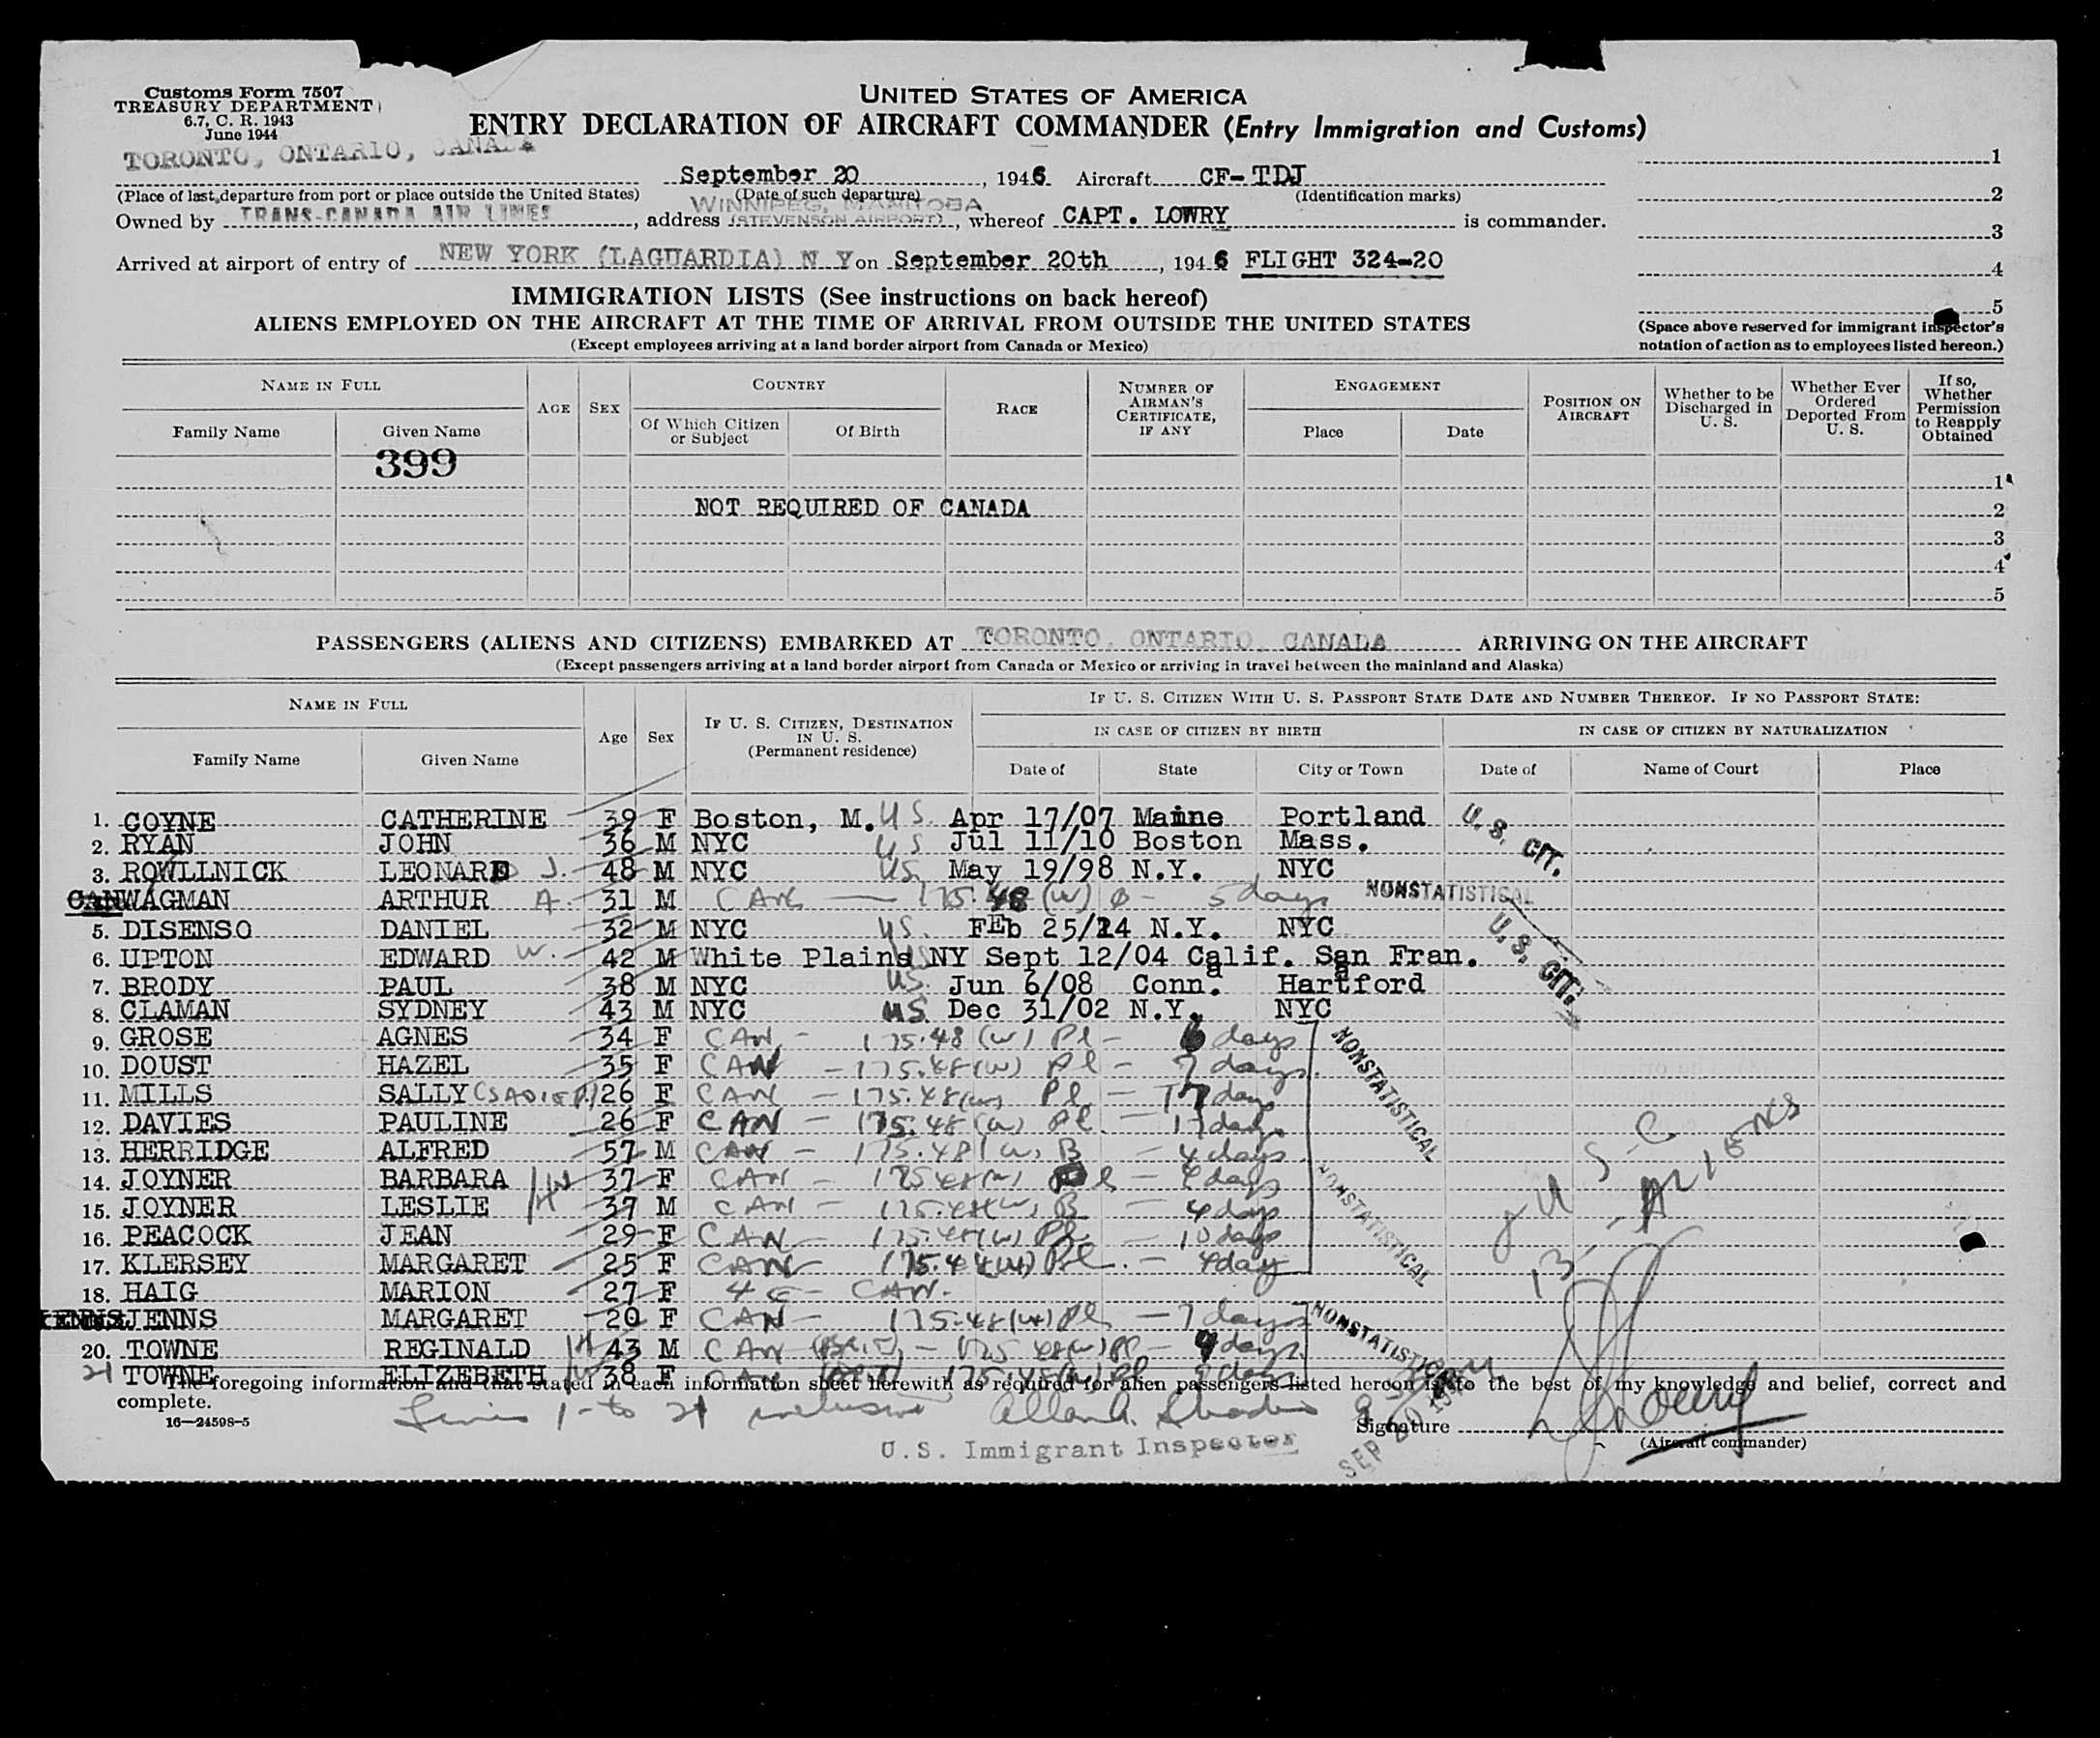 Customs Form 7507
TREASURY DEPARTMENT
6.7, C. R. 1943
June 1944
UNITED STATES OF AMERICA
ENTRY DECLARATION OF AIRCRAFT COMMANDER (Entry Immigration and Customs)
TORONTO, ONTARIO, CANADA September 20, 1946 Aircraft CF-TDJ 1
(Place of last departure from port or place outside the United States) (Date of such departure) (Identification marks) 2
Owned by TRANS-CANADA AIR LINES, address WINNIPEG, MANITOBA (STEVENSON AIRPORT), whereof CAPT. LOWRY is commander. 3
Arrived at airport of entry of NEW YORK (LAGUARDIA) N Y on September 20th, 1946 FLIGHT 324-20 4
IMMIGRATION LISTS (See instructions on back hereof) 5
ALIENS EMPLOYED ON THE AIRCRAFT AT THE TIME OF ARRIVAL FROM OUTSIDE THE UNITED STATES
(Except employees arriving at a land border airport from Canada or Mexico)
(Space above reserved for immigrant inspector's notation of action as to employees listed hereon.)
NAME IN FULL AGE SEX COUNTRY RACE NUMBER OF AIRMAN'S CERTIFICATE, IF ANY ENGAGEMENT POSITION ON AIRCRAFT Whether to be Discharged in U. S. Whether Ever Ordered Deported From U. S. If so, Whether Permission to Reapply Obtained
Family Name Given Name Of Which Citizen or Subject Of Birth Place Date
399
1
NOT REQUIRED OF CANADA 2
3
4
5
PASSENGERS (ALIENS AND CITIZENS) EMBARKED AT TORONTO, ONTARIO, CANADA ARRIVING ON THE AIRCRAFT
(Except passengers arriving at a land border airport from Canada or Mexico or arriving in travel between the mainland and Alaska)
NAME IN FULL Age Sex IF U. S. CITIZEN, DESTINATION IN U. S. (Permanent residence) IF U. S. CITIZEN WITH U. S. PASSPORT STATE DATE AND NUMBER THEREOF. IF NO PASSPORT STATE:
IN CASE OF CITIZEN BY BIRTH IN CASE OF CITIZEN BY NATURALIZATION
Family Name Given Name Date of State City or Town Date of Name of Court Place
1. COYNE CATHERINE 39 F Boston, M. US Apr 17/07 Maine Portland U. S. CIT.
2. RYAN JOHN 36 M NYC US Jul 11/10 Boston Mass.
3. ROWLLNICK LEONARD J. 48 M NYC US May 19/98 N.Y. NYC
WAGMAN ARTHUR A. 31 M CAN — 175.48 (W) 5 days NONSTATISTICAL
5. DISENSO DANIEL 32 M NYC US. FEb 25/14 N.Y. NYC U. S. CIT.
6. UPTON EDWARD W. 42 M White Plains NY US Sept 12/04 Calif. San Fran.
7. BRODY PAUL 38 M NYC US. Jun 6/08 Conn. Hartford
8. CLAMAN SYDNEY 43 M NYC US Dec 31/02 N.Y. NYC
9. GROSE AGNES 34 F CAN - 175.48 (W) Pl - 6 days NONSTATISTICAL
10. DOUST HAZEL 35 F CAN - 175.48 (W) Pl - 7 days
11. MILLS SALLY (SADIE P.) 26 F CAN - 175.48 (W) Pl - 17 days
12. DAVIES PAULINE 26 F CAN - 175.48 (W) Pl. - 17 days
13. HERRIDGE ALFRED 57 M CAN - 175.48 (W) B - 4 days
14. JOYNER BARBARA 37 F CAN - 175.48 (W) Pl - 4 days
15. JOYNER LESLIE 37 M CAN - 175.48 (W) B - 4 days NONSTATISTICAL
16. PEACOCK JEAN 29 F CAN - 175.48 (W) Pl - 10 days
17. KLERSEY MARGARET 25 F CAN - 175.48 (W) Pl. - 4 day
18. HAIG MARION 27 F 4 E - CAN.
JENNS MARGARET 20 F CAN - 175.48 (W) Pl - 7 days NONSTATISTICAL
20. TOWNE REGINALD H 43 M CAN - 175.48 (W) Pl - 9 days
21 TOWNE ELIZEBETH W 38 F CAN 175.48 (W) Pl 9 days
8 U S C
13 - ALIENS
The foregoing information and that stated in each information sheet herewith as required for alien passengers listed hereon is to the best of my knowledge and belief, correct and
complete.
16—24598-5
Lines 1 - to 21 inclusive Allan A.
U.S. Immigrant Inspector
SEP 20 1946
Signature Lowry
(Aircraft commander)